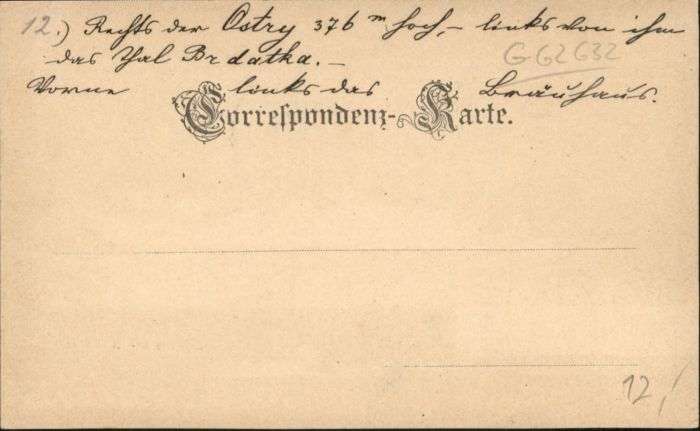 12.) Rechts der Ostry 376 m hoch, – links von ihm
das Thal Brdatka. –
G G2 G32
Vorne links das Bräuhaus.
Correspondenz-Karte.
12,